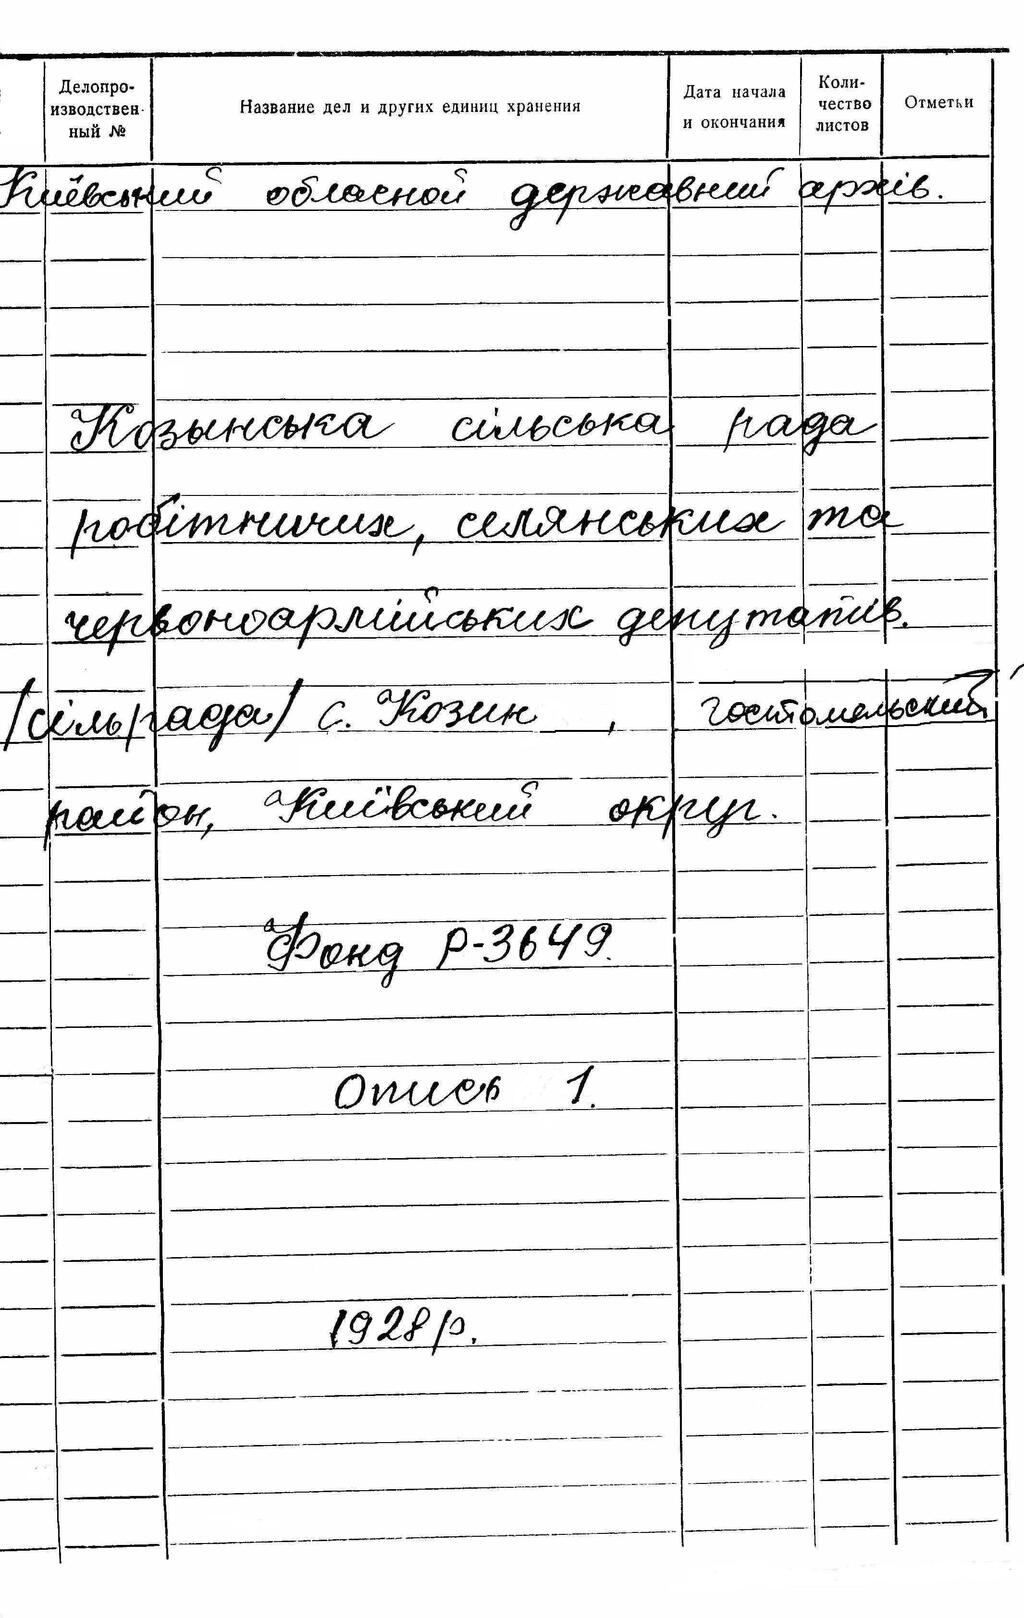 Делопро-
изводствен-
ный №
Название дел и других единиц хранения
Дата начала
и окончания
Коли-
чество
листов
Отметки
Київський обласной державний архів.
Козынська сільська рада
робітничих, селянських та
червоноармійських депутатів.
/сільрада/ с. Козин , гостомельский
район, Київський округ.
Фонд Р-3649.
Опись 1.
1928р.